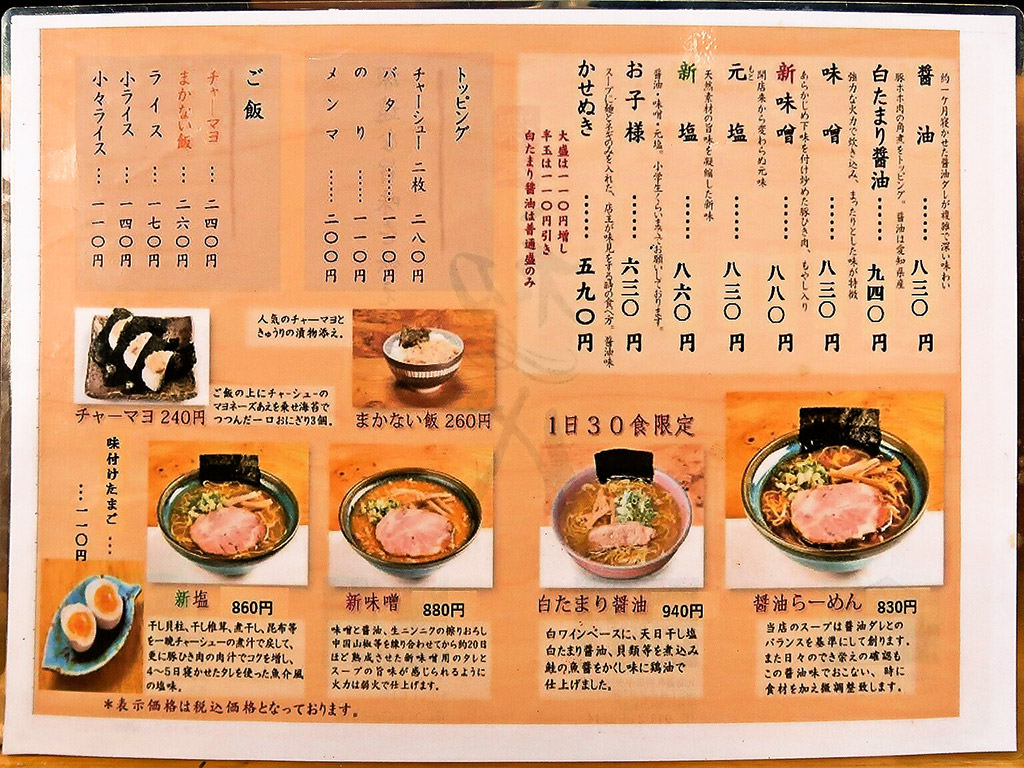 約一ケ月寝かせた醤油ダレが複雑で深い味わい
醤油……八三〇円
豚ホホ肉の角煮をトッピング。醤油は愛知県産
白たまり醤油……九四〇円
強力な火力で炊き込み、まったりとした味が特徴
味噌……八三〇円
あらかじめ下味を付け炒めた豚ひき肉、もやし入り
新味噌……八八〇円
開店来から変わらぬ元味
元塩……八三〇円
もと
天然素材の旨味を凝縮した新味
新塩……八六〇円
醤油・味噌・元塩。小学生くらいまでお願いしております。
お子様……六三〇円
スープに麺とネギのみを入れた、店主が味見をする時の食べ方。醤油味
かせぬき……五九〇円
大盛は一一〇円増し
半玉は一一〇円引き
白たまり醤油は普通盛のみ
トッピング
チャーシュー二枚 二八〇円
バター……一一〇円
のり……一一〇円
メンマ……二〇〇円
ご飯
チャーマヨ…二四〇円
まかない飯…二六〇円
ライス…一七〇円
小ライス…一四〇円
小々ライス…一一〇円
人気のチャーマヨと
きゅうりの漬物添え。
ご飯の上にチャーシューの
マヨネーズあえを乗せ海苔で
つつんだ一口おにぎり3個。
チャーマヨ 240円
まかない飯 260円
味付けたまご…
…一一〇円
1日30食限定
新塩 860円
干し貝柱、干し椎茸、煮干し、昆布等
を一晩チャーシューの煮汁で戻して、
更に豚ひき肉の肉汁でコクを増し、
4〜5日寝かせたタレを使った魚介風
の塩味。
新味噌 880円
味噌と醤油、生ニンニクの擦りおろし
中国山椒等を練り合わせてから約20日
ほど熟成させた新味噌用のタレと
スープの旨味が感じられるように
火力は弱火で仕上げます。
白たまり醤油 940円
白ワインベースに、天日干し塩
白たまり醤油、貝類等を煮込み
鮭の魚醤をかくし味に鶏油で
仕上げました。
醤油らーめん 830円
当店のスープは醤油ダレとの
バランスを基準にして創ります。
また日々のでき栄えの確認も
この醤油味でおこない、時に
食材を加え微調整致します。
*表示価格は税込価格となっております。